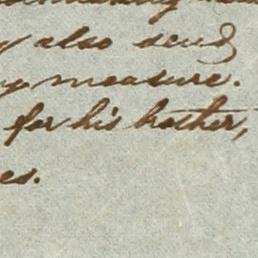 also send
measure.
for his brother,
es.